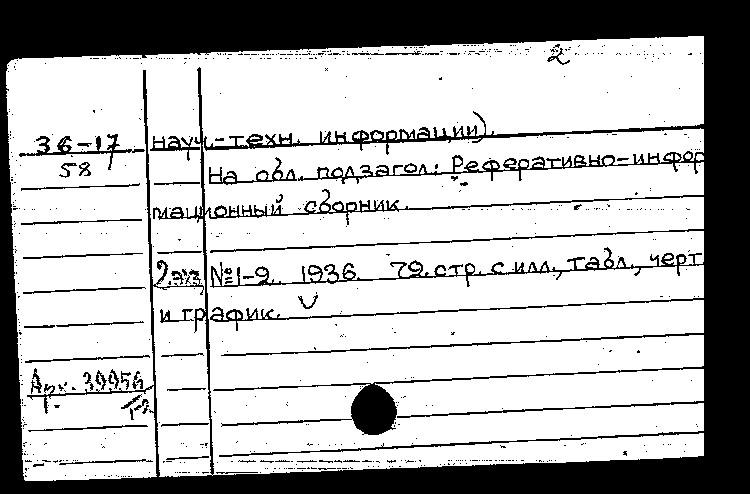 2
36-17 науч.-техн. информации).
58 На обл. подзагол: Реферативно-инфор
мационный сборник.
2 экз №1-2. 1936. 79. стр. с илл., табл., черт.
и график. V
Арх. 39956
1-2